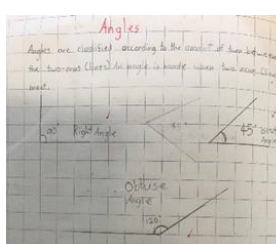 Angles
Angles are classified according to the amount of turn between
the two arms (lines). An angle is made when two arms
meet.
90° Right Angle
45°
Angle
Obtuse
Angle
120°